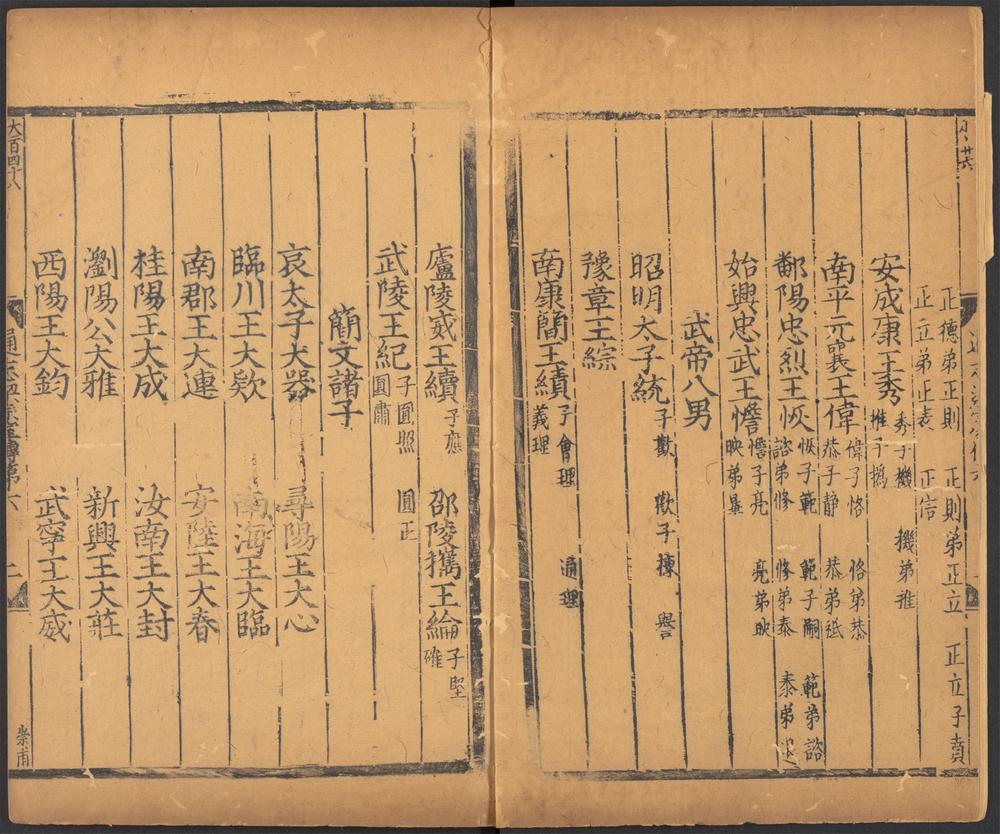 正德弟正則 正則弟正立 正立子賁
正立弟正表 正信
安成康王秀 秀子機 機弟推
推子撝
南平元襄王偉 偉子恪 恪弟恭
恭子靜 恭弟祗
鄱陽忠烈王恢 恢子範 範子嗣 範弟諮
諮弟修 修弟泰 泰弟
始興忠武王憺 憺子亮 亮弟映
映弟曅
武帝八男
昭明太子統 子歡 歡子棟 譽
豫章王綜
南康簡王績 子會理 通理
義理
廬陵威王續 子應 邵陵攜王綸 子堅
確
武陵王紀 子圓照 圓正
圓肅
簡文諸子
哀太子大器 尋陽王大心
臨川王大欵 南海王大臨
南郡王大連 安陸王大春
桂陽王大成 汝南王大封
瀏陽公大雅 新興王大莊
西陽王大鈞 武寧王大威
大百四十八
傳第六